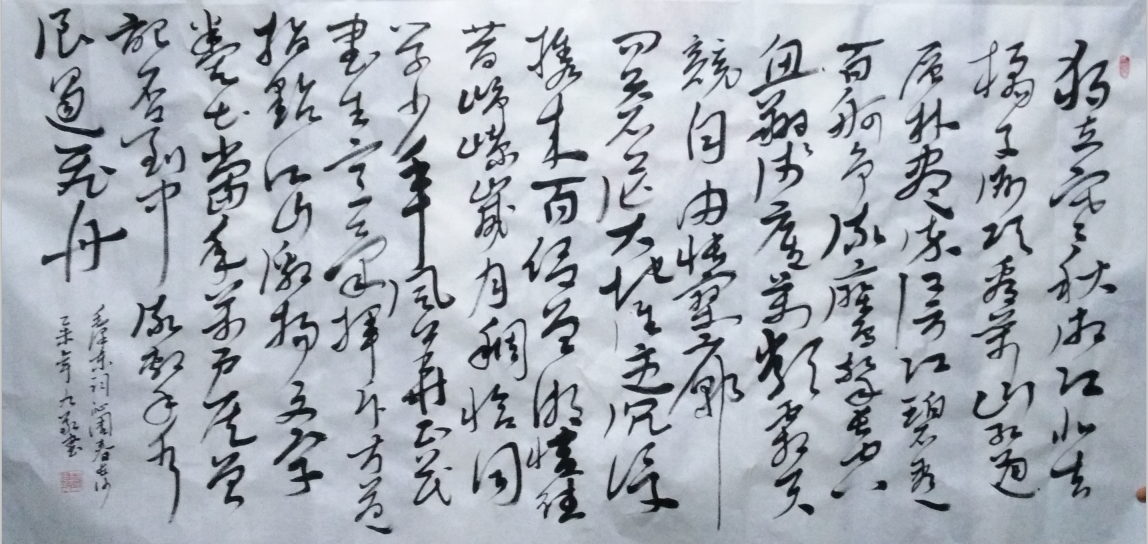 独立寒秋湘江北去
橘子洲头看万山红遍
层林尽染漫江碧透
百舸争流鹰击长空
鱼翔浅底万类霜天
竞自由怅寥廓
问苍茫大地谁主沉浮
携来百侣曾游忆往
昔峥嵘岁月稠恰同
学少年风华正茂
书生意气挥斥方遒
指点江山激扬文字
粪土当年万户侯曾
记否到中流击水
浪遏飞舟
毛泽东词沁园春长沙
乙未年九敬书